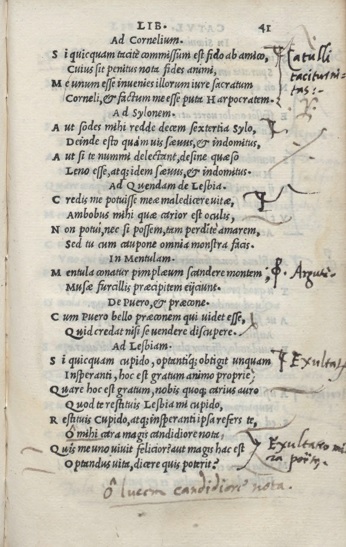 LIB. 41
Ad Cornelium.
S i quicquam tacite commissum est fido ab amico,
Cuius sit penitus nota fides animi,
M e unum esse invenies illorum iure sacratum
Corneli, & factum me esse puta Harpocratem.
Catulli
tacitus
Ad Sylonem.
A ut sodes mihi redde decem sextertia Sylo,
Deinde esto quamuis sæuus, & indomitus,
A ut si te nummi delectant, desine quæso
Leno esse, atq; idem sæuus, & indomitus.
Ad Quendam de Lesbia.
C redis me potuisse meæ maledicere uitæ,
Ambobus mihi quæ carior est oculis,
N on potui, nec si possem, tam perdite amarem,
Sed tu cum caupone omnia monstra facis.
In Mentulam.
M entula conatur pimplæum scandere montem
Musæ furcillis præcipitem eijciunt.
De Puero, & præcone.
C um Puero bello præconem qui uidet esse,
Quid credat nisi se uendere discupere.
Ad Lesbiam.
S i quicquam cupido, optantiq; obtigit unquam
Insperanti, hoc est gratum animo proprie;
Quare hoc est gratum, nobis quoq; carius auro
Quod te restituis Lesbia mi cupido,
R estituis Cupido, atq; insperanti ipsa refers te,
O mihi atra magis candidiore nota,
Quis me uno uiuit felicior? aut magis hac est
Optandus uita, dicere quis poterit?
Exultatio
ô lucem candidiore nota.